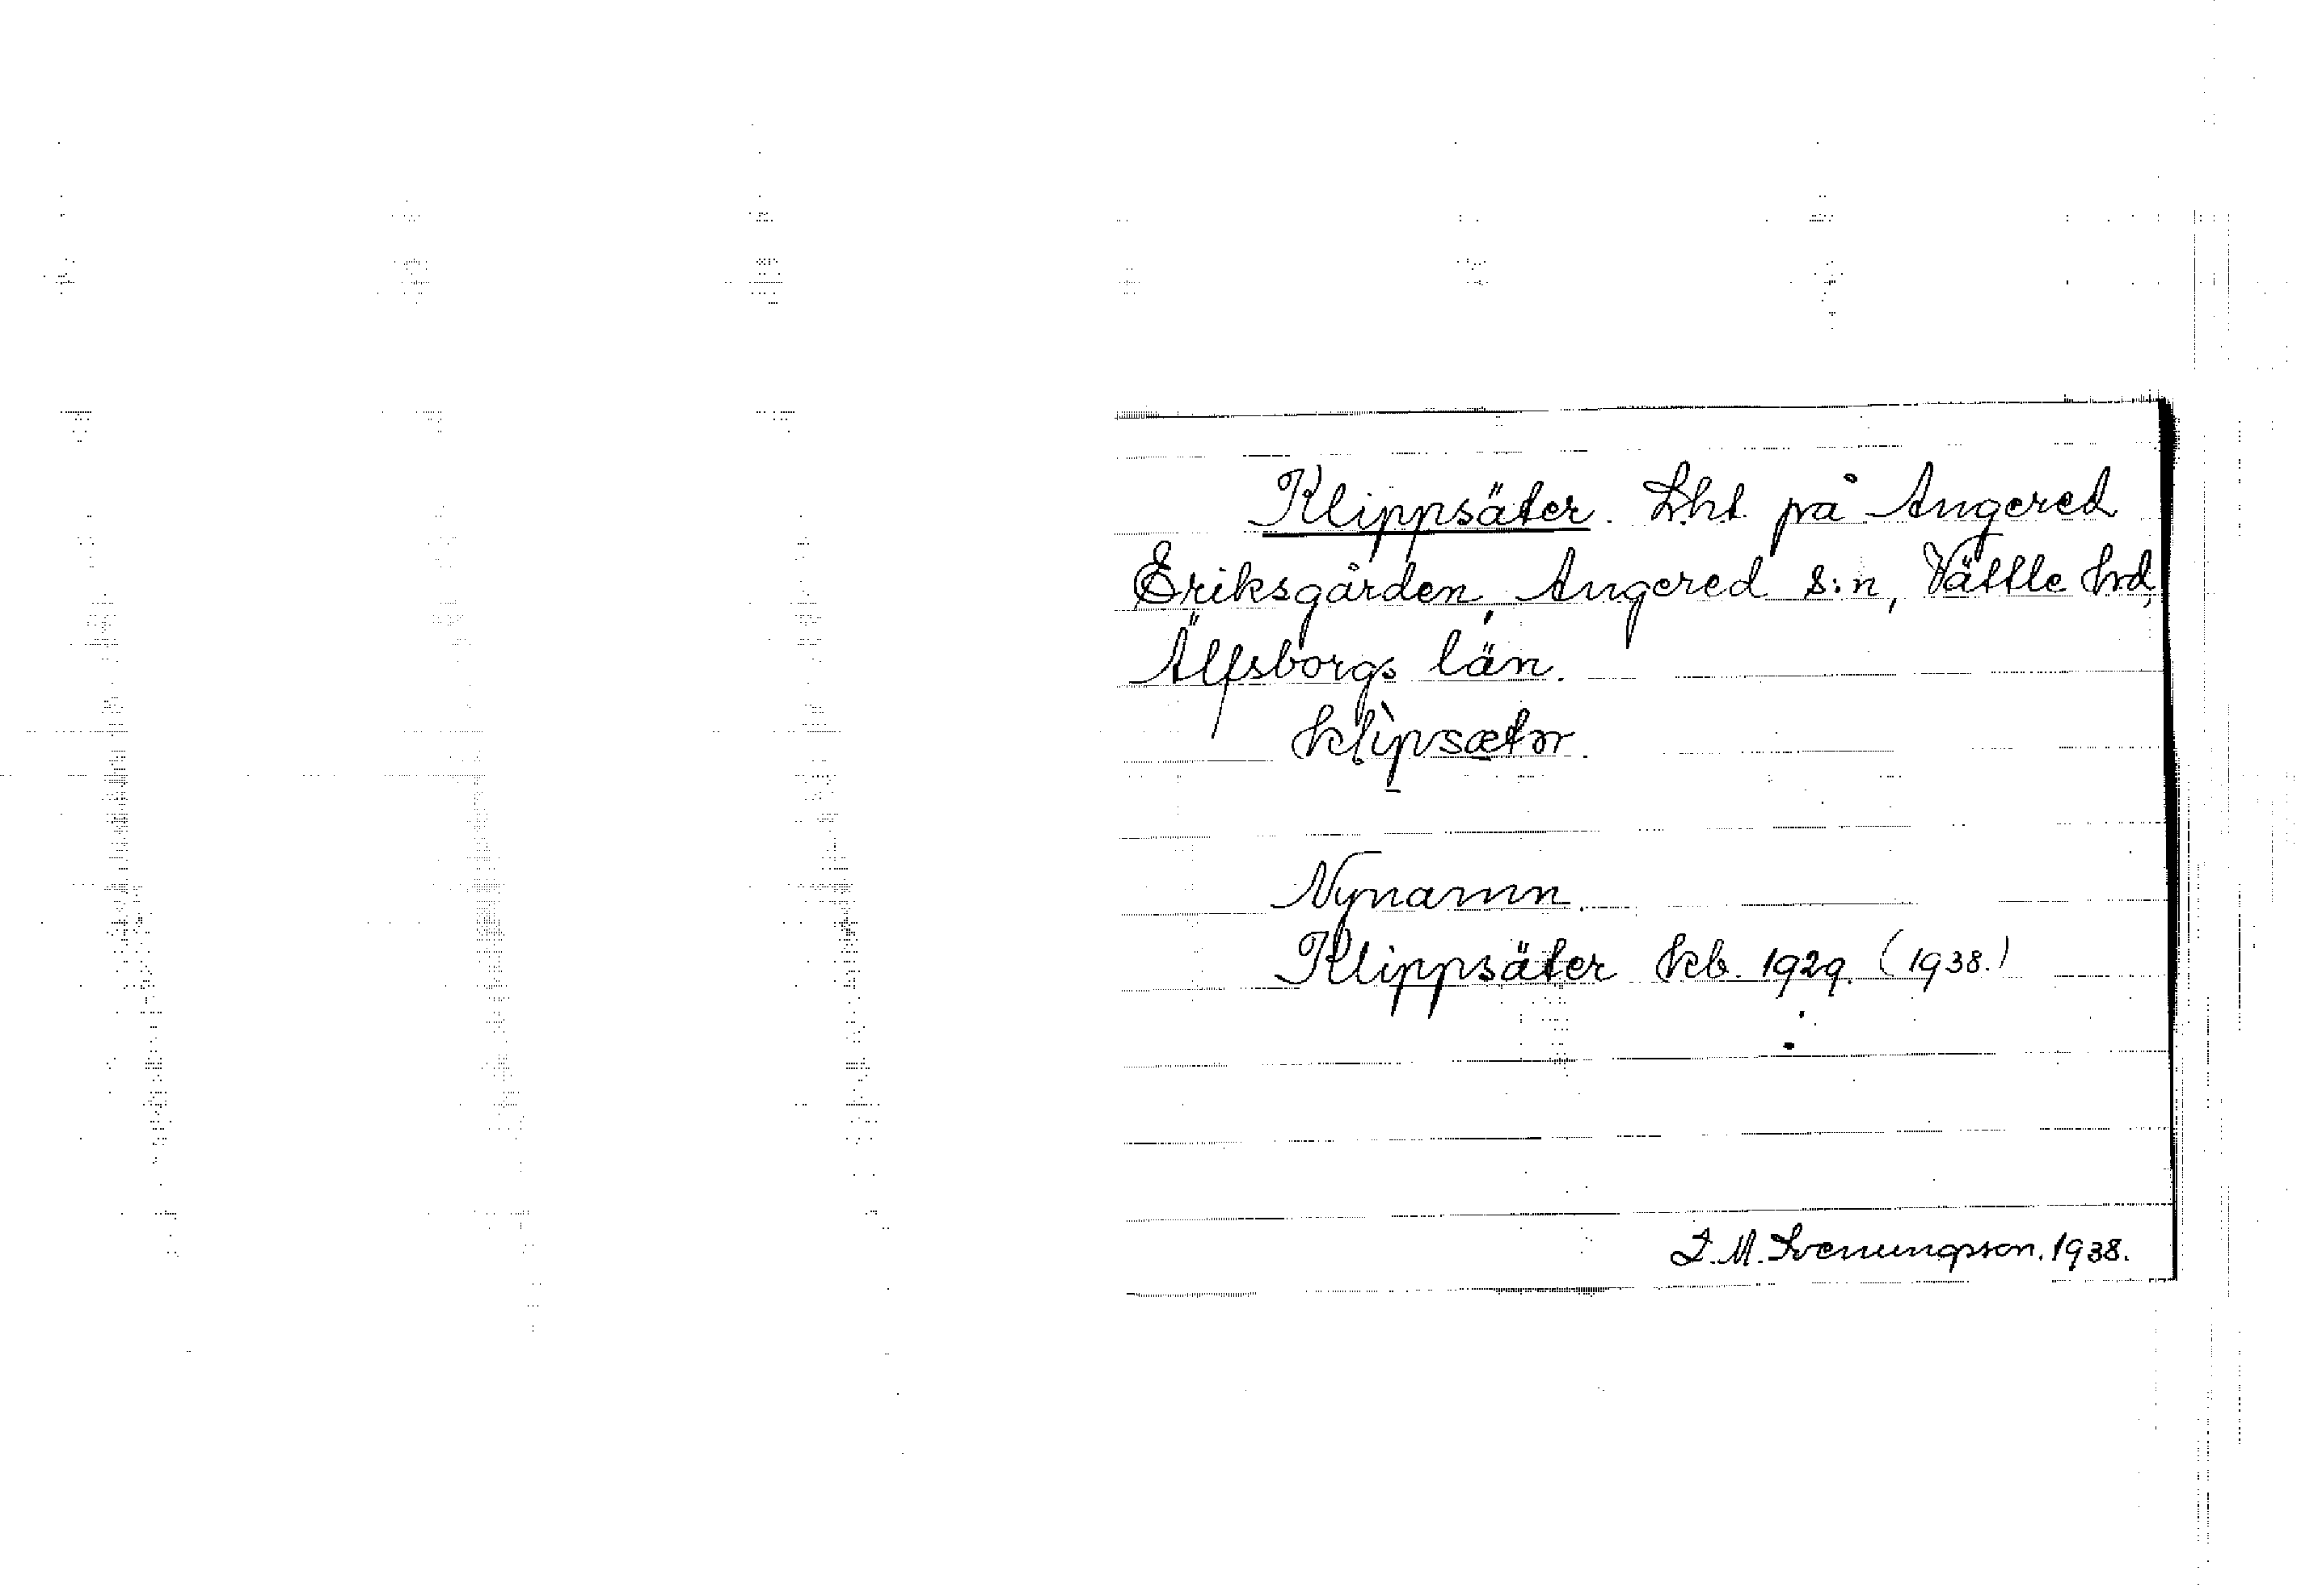 Klippsäter. Lht. på Angered
Eriksgården, Angered s:n, Vättle hrd,
Älfsborgs län.
klìpsætər.
Nynamn.
Klippsäter kb. 1929. (1938.)
I. M. Svenungsson. 1938.